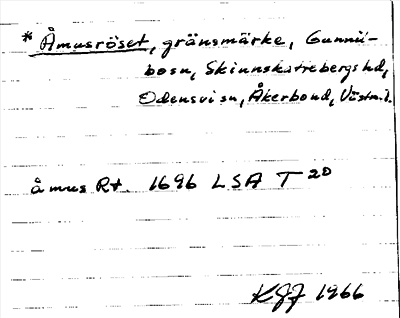 * Åmusröset, gränsmärke, Gunnil-
bosn, Skinnskattebergs hd,
Odensvi sn, Åkerbond, Västm.l.
åmus Rt. 1696 LSA T 20
KGJ 1966